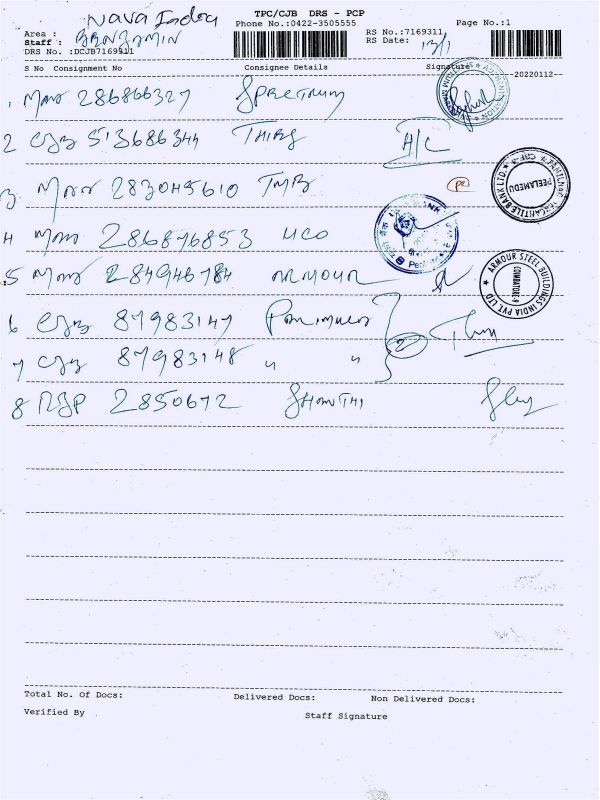 Nava India
TPC/CJB DRS - PCP
Phone No.:0422-3505555
Page No.:1
Area :
Staff : BENJAMIN
DRS No. :DCJB7169311
RS No.:7169311
RS Date: 13/1
S No Consignment No Consignee Details Signature
--20220112--
1 286866327 SPECTRUM
2 CJB 513686344 A/C
3 283045610 TMB
TAMILNAD MERCANTILE BANK LTD. PEELAMEDU CBE-4
4 286876853 UCO
5 284946784 ARMOUR
ARMOUR STEEL BUILDINGS INDIA PVT. LTD COIMBATORE
6 CJB 87983147 2
7 CJB 87983148 " "
8 RJP 2850672 SHANTHI
Total No. Of Docs: Delivered Docs: Non Delivered Docs:
Verified By
Staff Signature